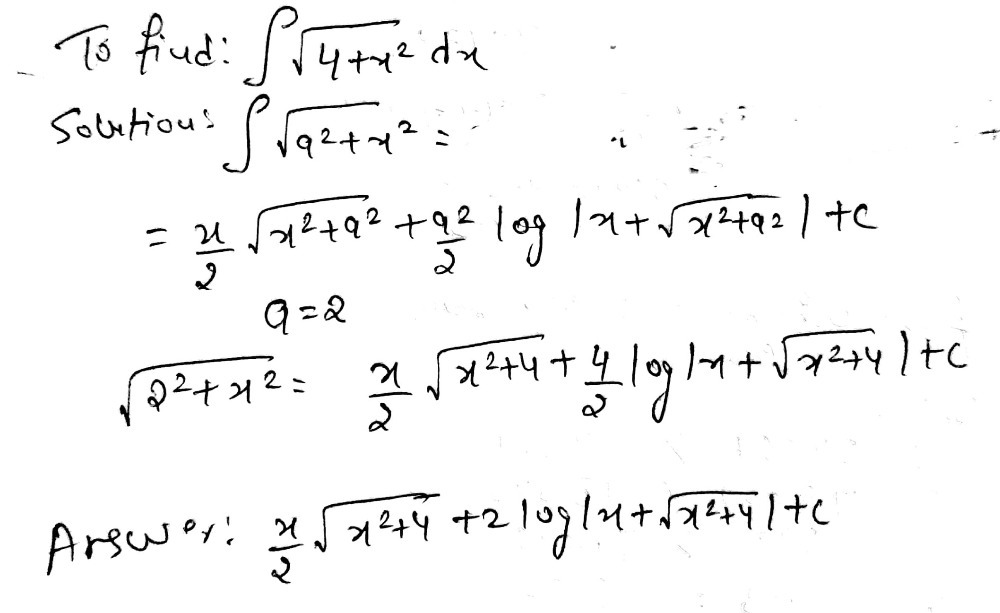 To find: ∫√(4+x²) dx
Solution: ∫√(a²+x²) =
= x/2 √(x²+a²) + a²/2 log |x+√(x²+a²)| +c
a=2
√(2²+x²) = x/2 √(x²+4) + 4/2 log|x+√(x²+4)|+c
Answer: x/2 √(x²+4) +2 log|x+√(x²+4)|+c